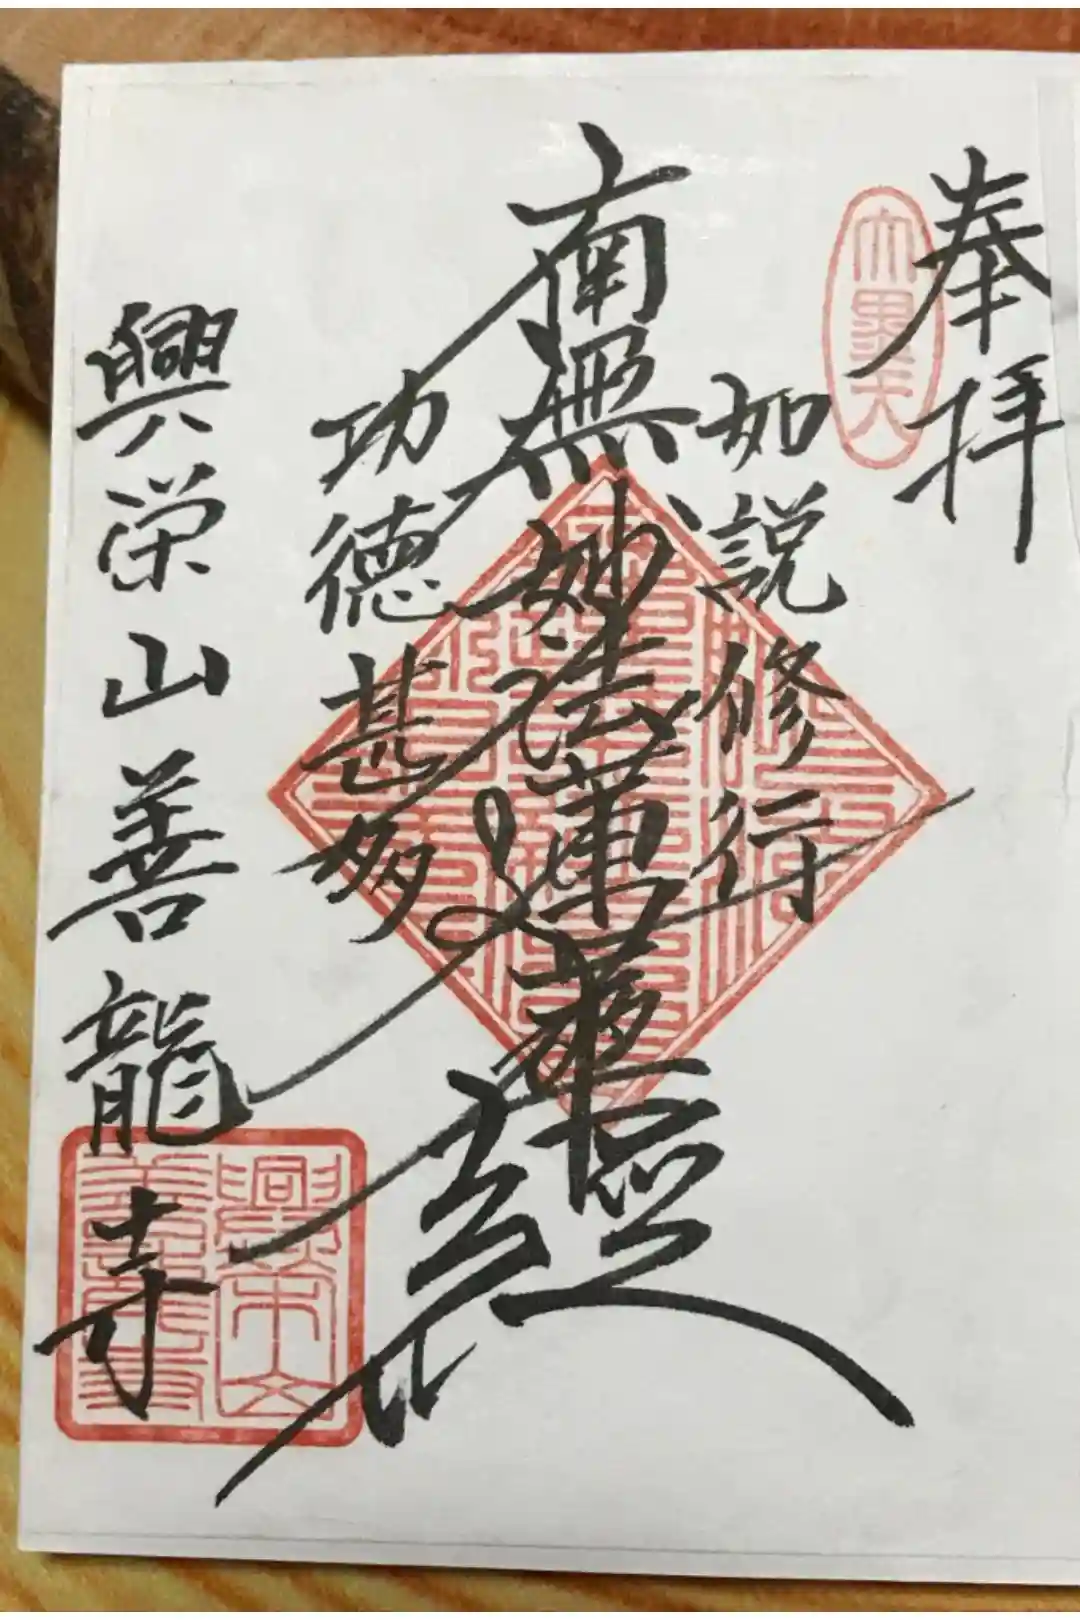 奉拝
大黒天
如説修行
南無妙法蓮華経
功徳甚多
興栄山善龍寺